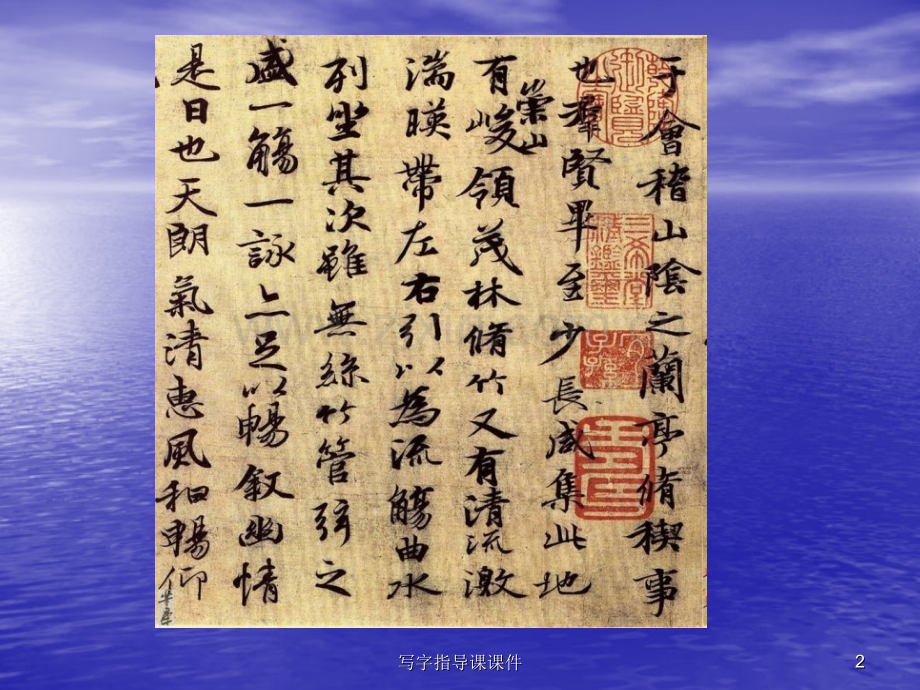 于會稽山陰之蘭亭脩稧事
也羣賢畢至少長咸集此地
有崇山峻領茂林脩竹又有清流激
湍暎帶左右引以為流觴曲水
列坐其次雖無絲竹管弦之
盛一觴一詠亦足以暢叙幽情
是日也天朗氣清惠風和暢仰
写字指导课课件
2